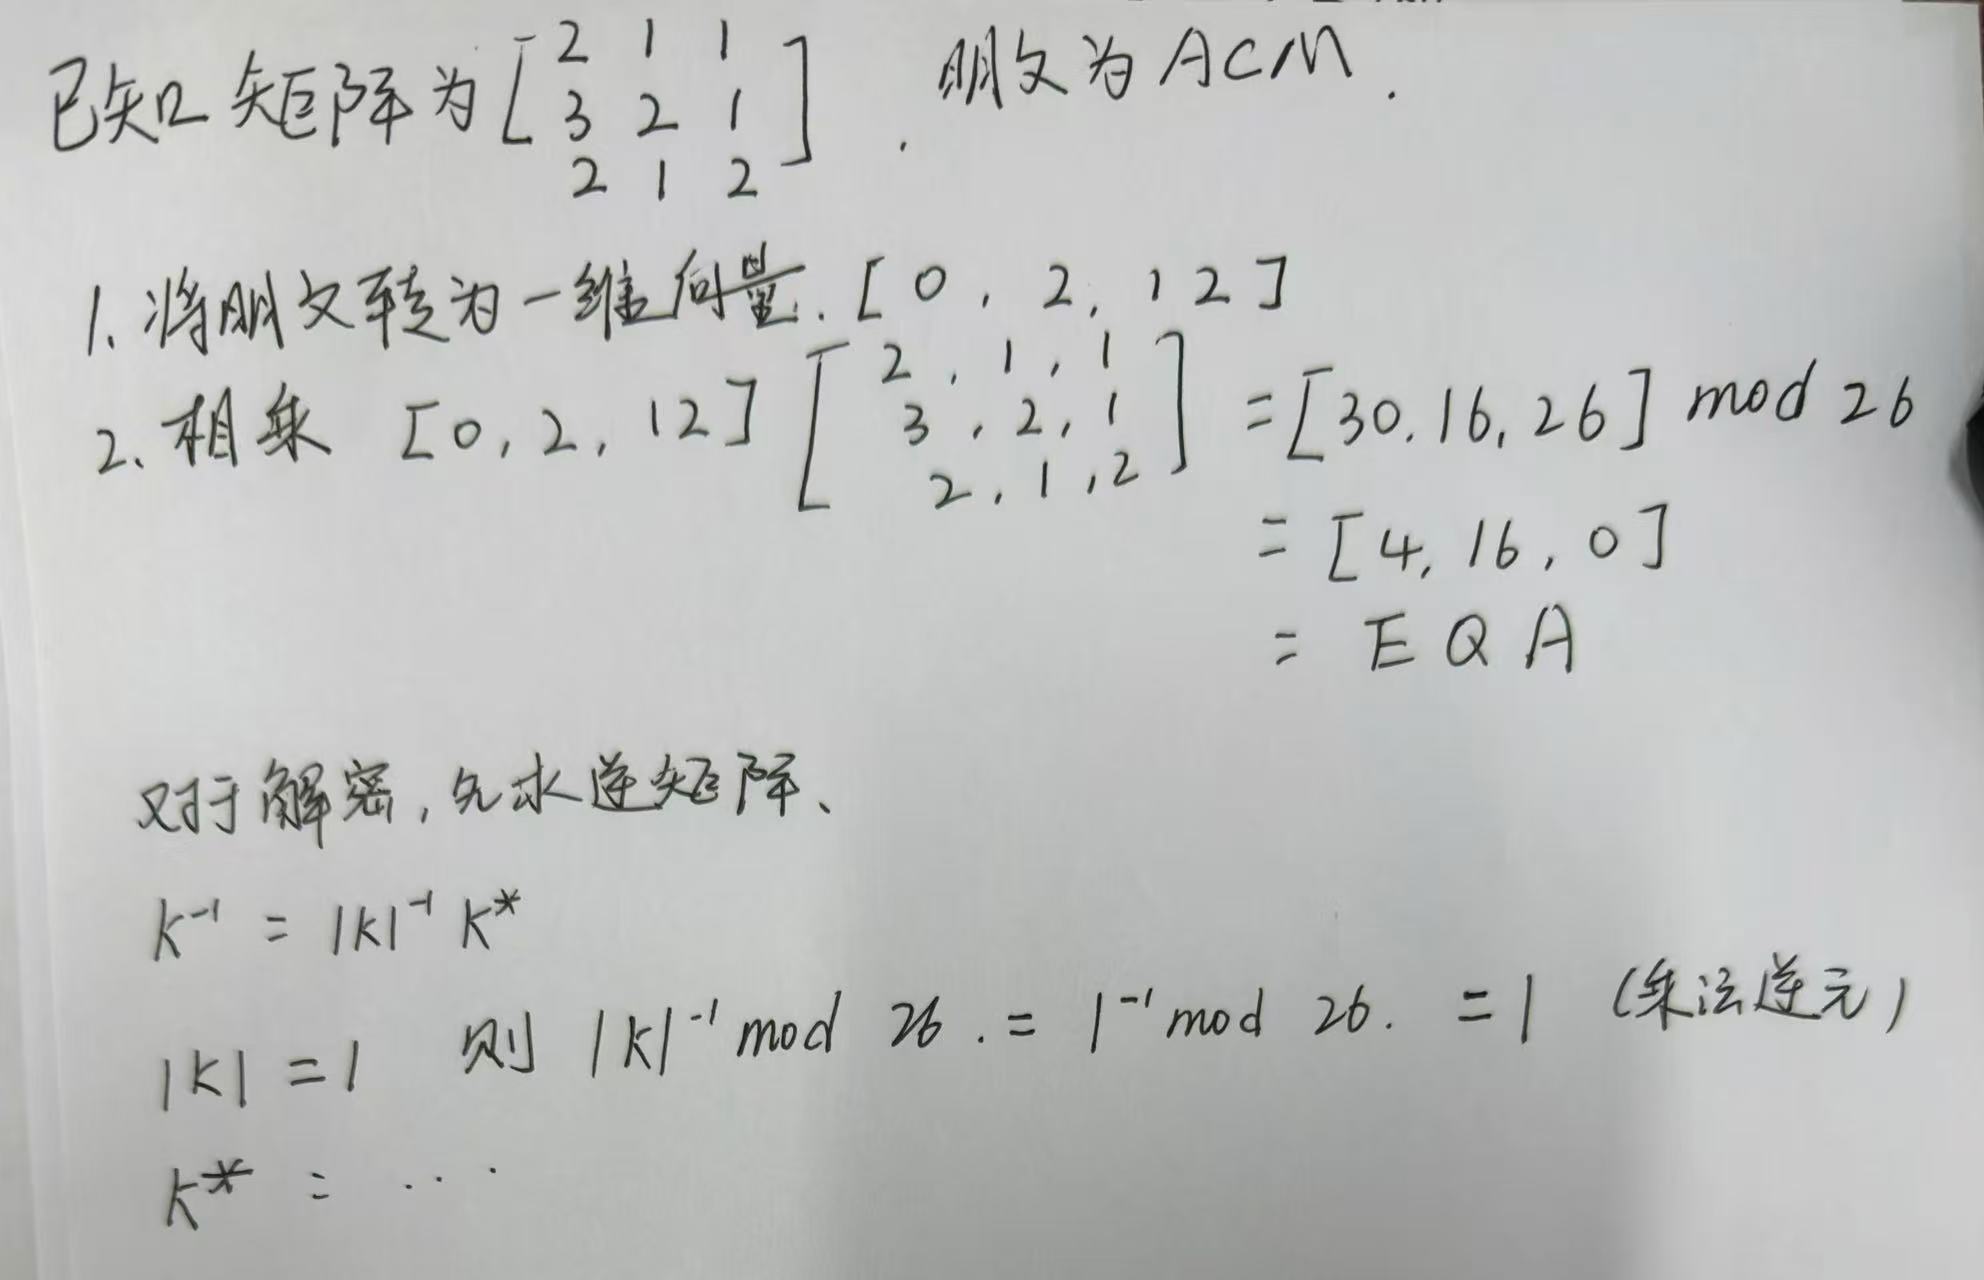 已知矩阵为[2 1 1
3 2 1
2 1 2], 明文为ACM.
1. 将明文转为一维向量. [0, 2, 12]
2. 相乘 [0, 2, 12] [2, 1, 1
3, 2, 1
2, 1, 2] = [30, 16, 26] mod 26
= [4, 16, 0]
= E Q A
对于解密, 先求逆矩阵、
k⁻¹ = |k|⁻¹ k*
|k| = 1 则 |k|⁻¹ mod 26. = 1⁻¹ mod 26. = 1 (乘法逆元)
k* = ...